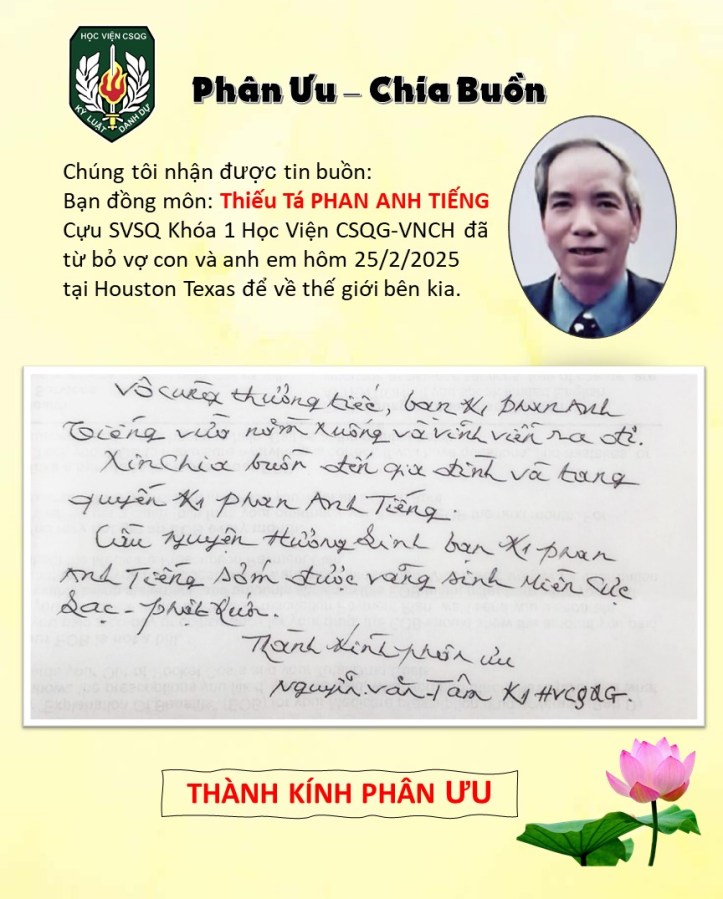 HỌC VIỆN CSQG
KỶ LUẬT DANH DỰ
Phân Ưu – Chia Buồn
Chúng tôi nhận được tin buồn:
Bạn đồng môn: Thiếu Tá PHAN ANH TIẾNG
Cựu SVSQ Khóa 1 Học Viện CSQG-VNCH đã
từ bỏ vợ con và anh em hôm 25/2/2025
tại Houston Texas để về thế giới bên kia.
Vô cùng thương tiếc, bạn K1 Phan Anh
Tiếng vừa nằm xuống và vĩnh viễn ra đi.
Xin Chia buồn đến gia đình và tang
quyến K1 Phan Anh Tiếng.
Cầu nguyện Hương Linh bạn K1 Phan
Anh Tiếng sớm được vãng sinh Miền Cực
Lạc - Phật Quốc.
Thành kính phân ưu
Nguyễn Văn-Tâm K1 HVCSQG.
THÀNH KÍNH PHÂN ƯU